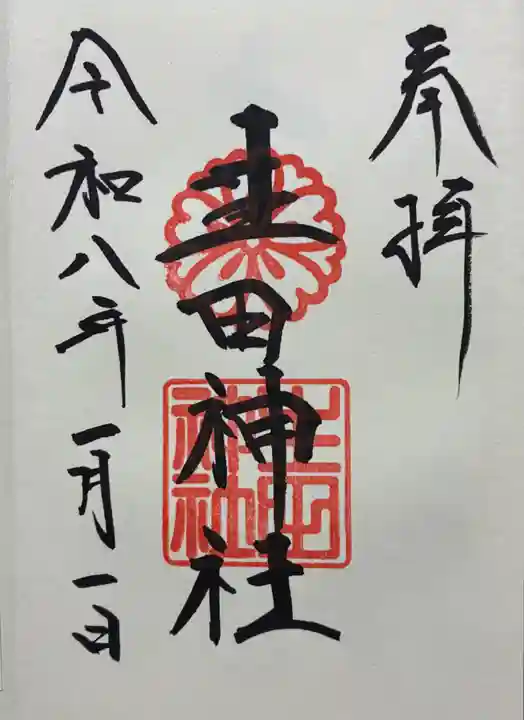 奉拝
生田神社
生田
神社
令和八年一月一日